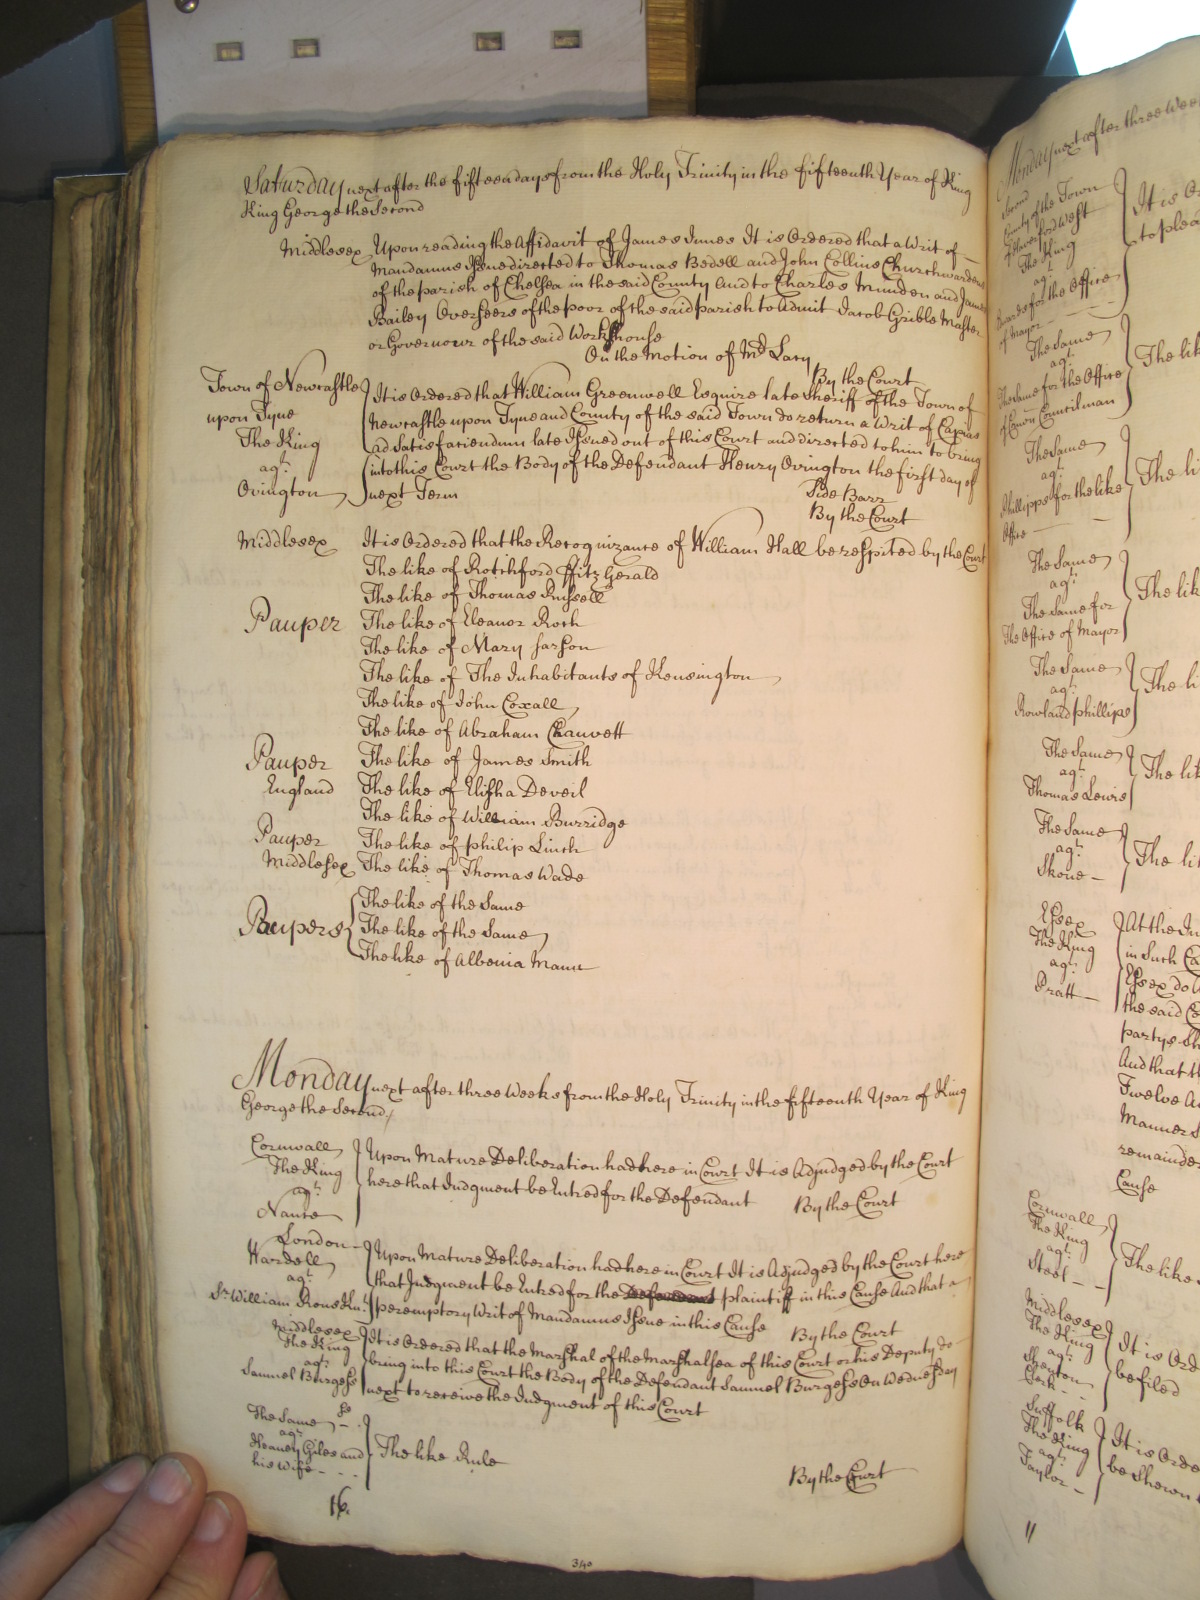 Saturday next after the fifteen days from the Holy Trinity in the fifteenth Year of King
King George the Second
Middlesex Upon reading the Affidavit of James Innes It is Ordered that a Writ of
Mandamus Issue directed to Thomas Bedell and John Collins Churchwardens
of the parish of Chelsea in the said County and to Charles Munden and James
Bailey Overseers of the poor of the said parish to Admit Jacob Grible Master
or Governour of the said Workhouse
On the Motion of Mr Lacy
By the Court
Town of Newcastle
upon Tyne
The King
agt
Ovington
It is Ordered that William Greenwell Esquire late Sheriff of the Town of
Newcastle upon Tyne and County of the said Town do return a Writ of Capias
ad Satisfaciendum late Issued out of this Court and directed to him to bring
into this Court the Body of the Defendant Henry Ovington the first day of
next Term
Side Barr
By the Court
Middlesex It is Ordered that the Recognizance of William Hall be respited by the Court
The like of Rotchford ffitz Gerald
The like of Thomas Russell
Pauper The like of Eleanor Roch
The like of Mary Sarson
The like of The Inhabitants of Kensington
The like of John Coxall
The like of Abraham Chauvett
Pauper The like of James Smith
England The like of Elisha Deveil
The like of William Burridge
Pauper The like of Philip Linch
Middlesex The like of Thomas Wade
The like of the Same
Paupers The like of the Same
The like of Albenia Mann
Monday next after three Weeks from the Holy Trinity in the fifteenth Year of King
George the Second
Cornwall
The King
agt
Nance
Upon Mature Deliberation had here in Court It is Adjudged by the Court
here that Judgment be Entred for the Defendant By the Court
London
Wardell
agt
Sr William Rous Knt
Upon Mature Deliberation had here in Court It is Adjudged by the Court here
that Judgment be Entred for the Defendant plaintiff in this Cause And that a
peremptory Writ of Mandamus Issue in this Cause By the Court
Middlesex
The King
agt
Samuel Burgess
It is Ordered that the Marshal of the Marshalsea of this Court or his Deputy do
bring into this Court the Body of the Defendant Samuel Burgess On Wednesday
next to receive the Judgment of this Court
The Same
agt
Giles and
his Wife
The like Rule
By the Court
16
340
Monday next after three Weeks
County of the Town
of Haverfordwest
The King
agt
for the Office
of Mayor
It is Or
to plea
The Same
agt
The Same for the Office
of Councilman
The lik
The Same
agt
Phillipps for the like
Office
The li
The Same
agt
The Same for
The Office of Mayor
The lik
The Same
agt
Rowland Phillips
The li
The Same
agt
Thomas Lewis
The lik
The Same
agt
Skone
The li
Essex
The King
agt
Pratt
At the In
in Such Ca
Essex do
the said Co
partys Sh
And that th
Twelve A
Manners
remainde
Cause
Cornwall
The King
agt
Steel
The like
Middlesex
The King
agt
It is Ord
be filed
Suffolk
The King
agt
Taylor
It is Orde
be Shewn
11